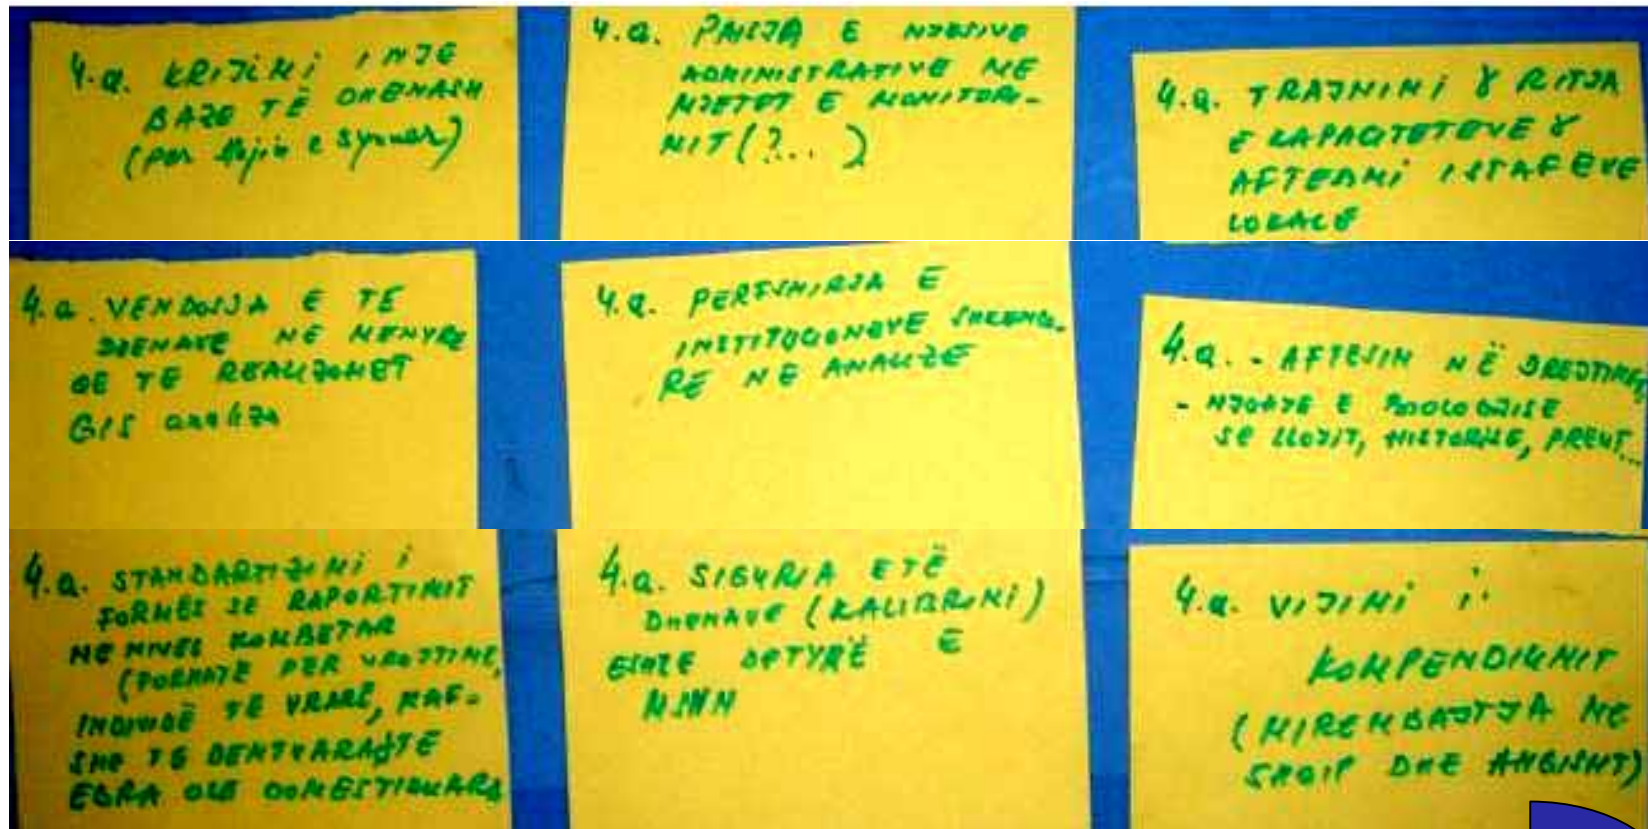 4.a. KRIJIMI I NJE
BAZE TË DHENASH
(për llojin e synuar)
4.a. PAISJA E NJESIVE
ADMINISTRATIVE ME
MJETET E MONITORI-
MIT (?... )
4.a. TRAJNIMI & RITJA
E KAPACITETEVE &
AFTESIMI I STAFEVE
LOKALE
4.a. VENDOSJA E TE
DHENAVE NE MENYRE
QE TE REALIZOHET
GIS analiza
4.a. PERFSHIRJA E
INSTITUCIONEVE SHKENCO-
RE NE ANALIZË
4.a. - AFTESIM NË
- NJOHJE E
SE LLOJIT, HISTORIKE,
4.a. STANDARTIZIMI I
FORMES SE RAPORTIMIT
NE NIVEL KOMBETAR
(FORMATE PER VROJTIME,
INDIVIDË TE VRARË, KAF-
SHE TE DEMTUARA
EGRA OSE DOMESTIKUARA
4.a. SIGURIA E TË
DHENAVE (KALIBRIMI)
ESHTE DETYRË E
4.a. VIJIMI I
KOMPENDIUMIT
(MIREMBAJTJA NE
SHQIP DHE ANGLISHT)